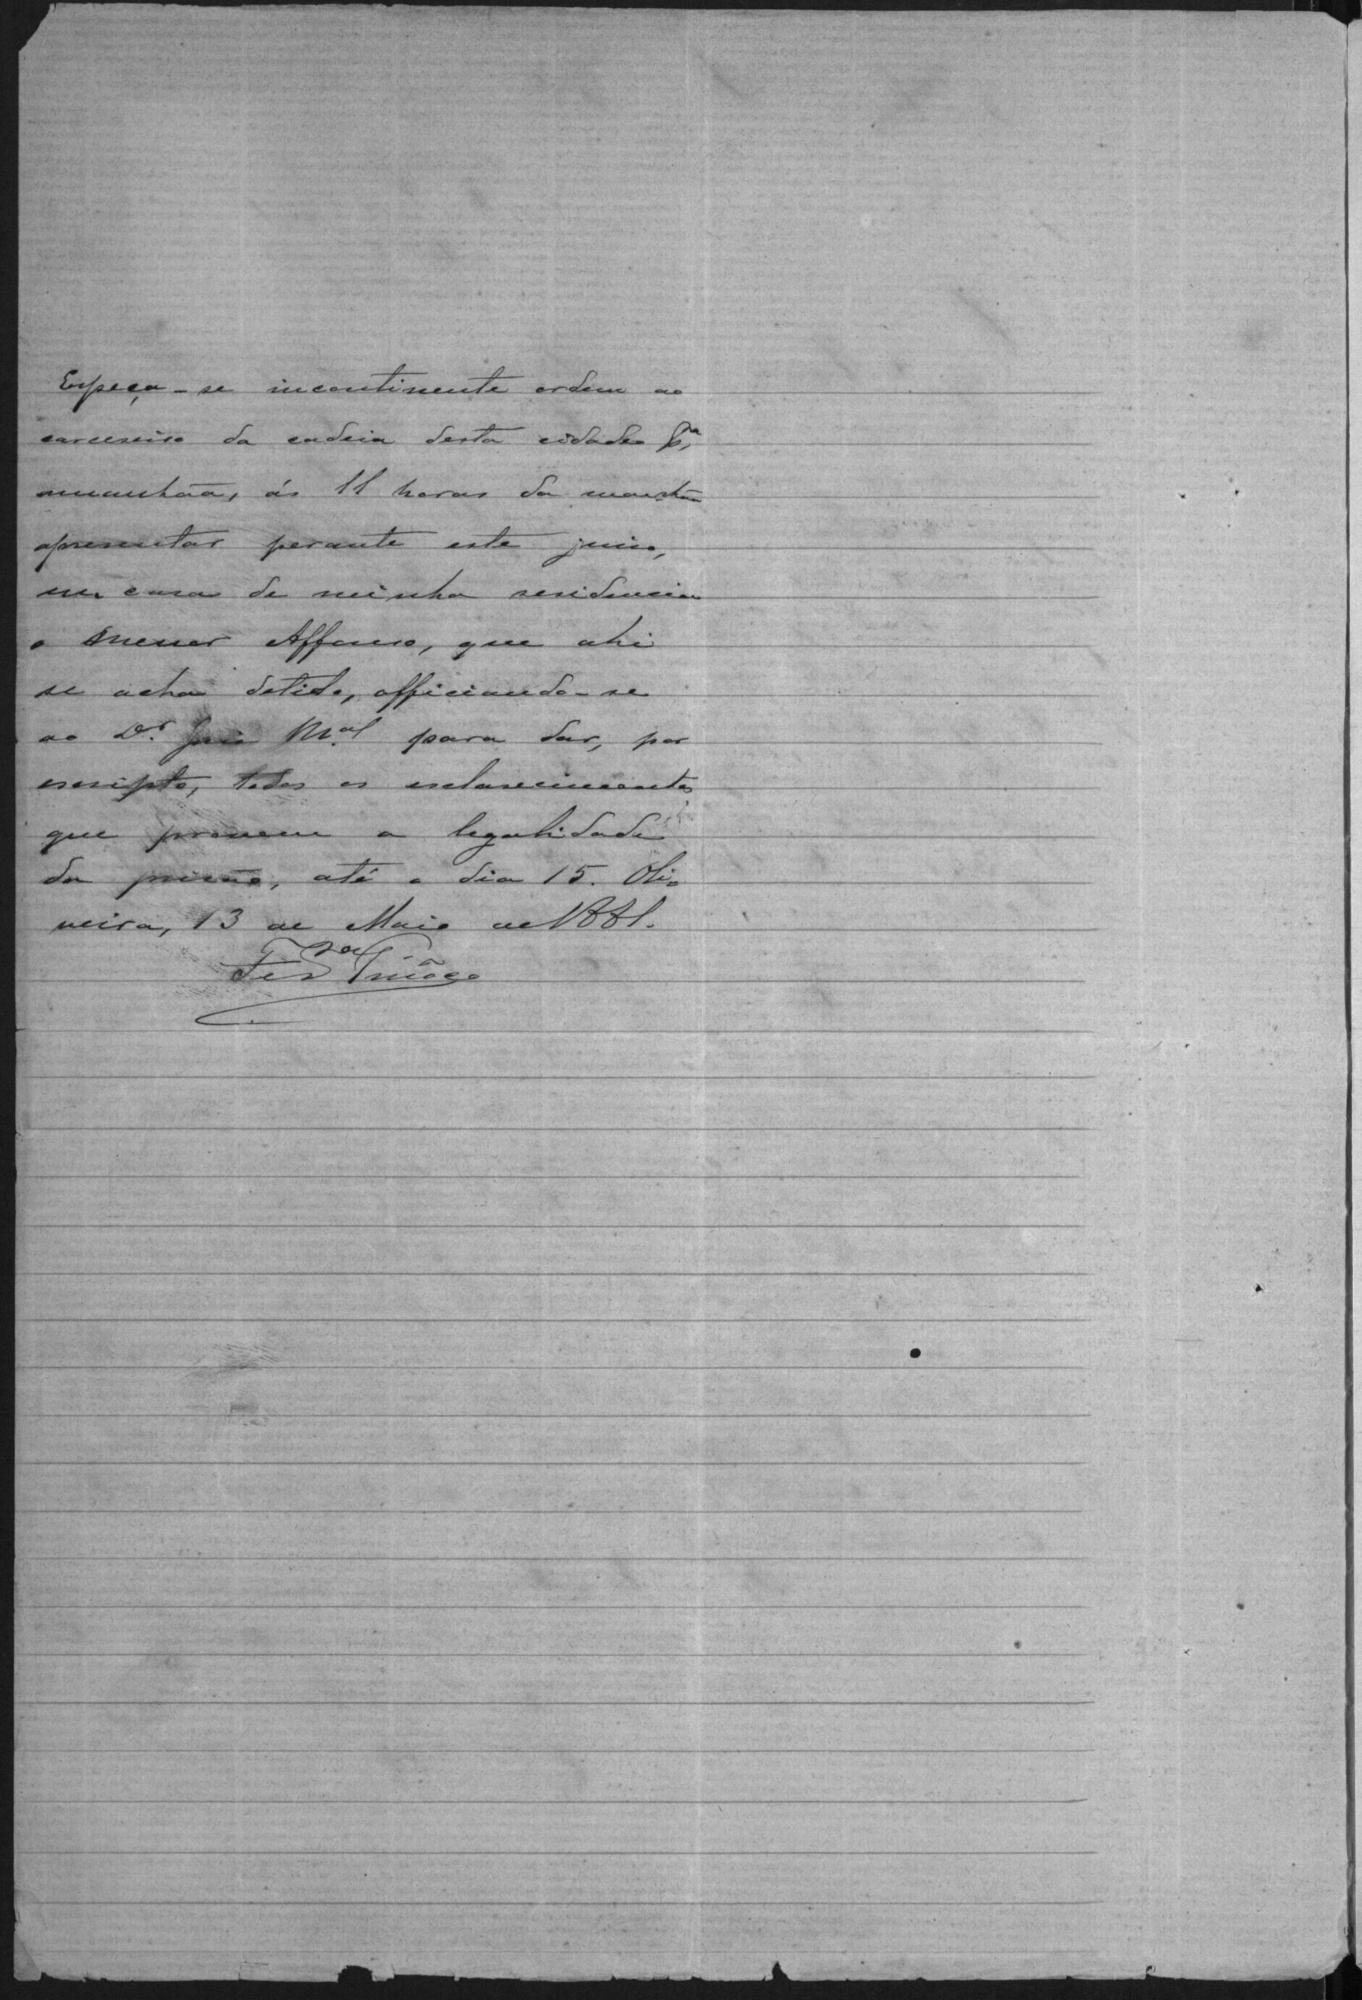 Expeça-se incontinente ordem ao
carcereiro da cadeia desta cidade p.ª
amanhãa, ás 11 horas da manhãa
apresentar perante este juiso,
em casa de minha residencia
o menor Affonso, que ahi
se acha detido, officiando-se
ao D.r Juis M.al para dar, por
escripto, todos os esclarecimentos
que provem a legalidade
da prisão, até o dia 15. Oli-
veira, 13 de Maio de 1881.